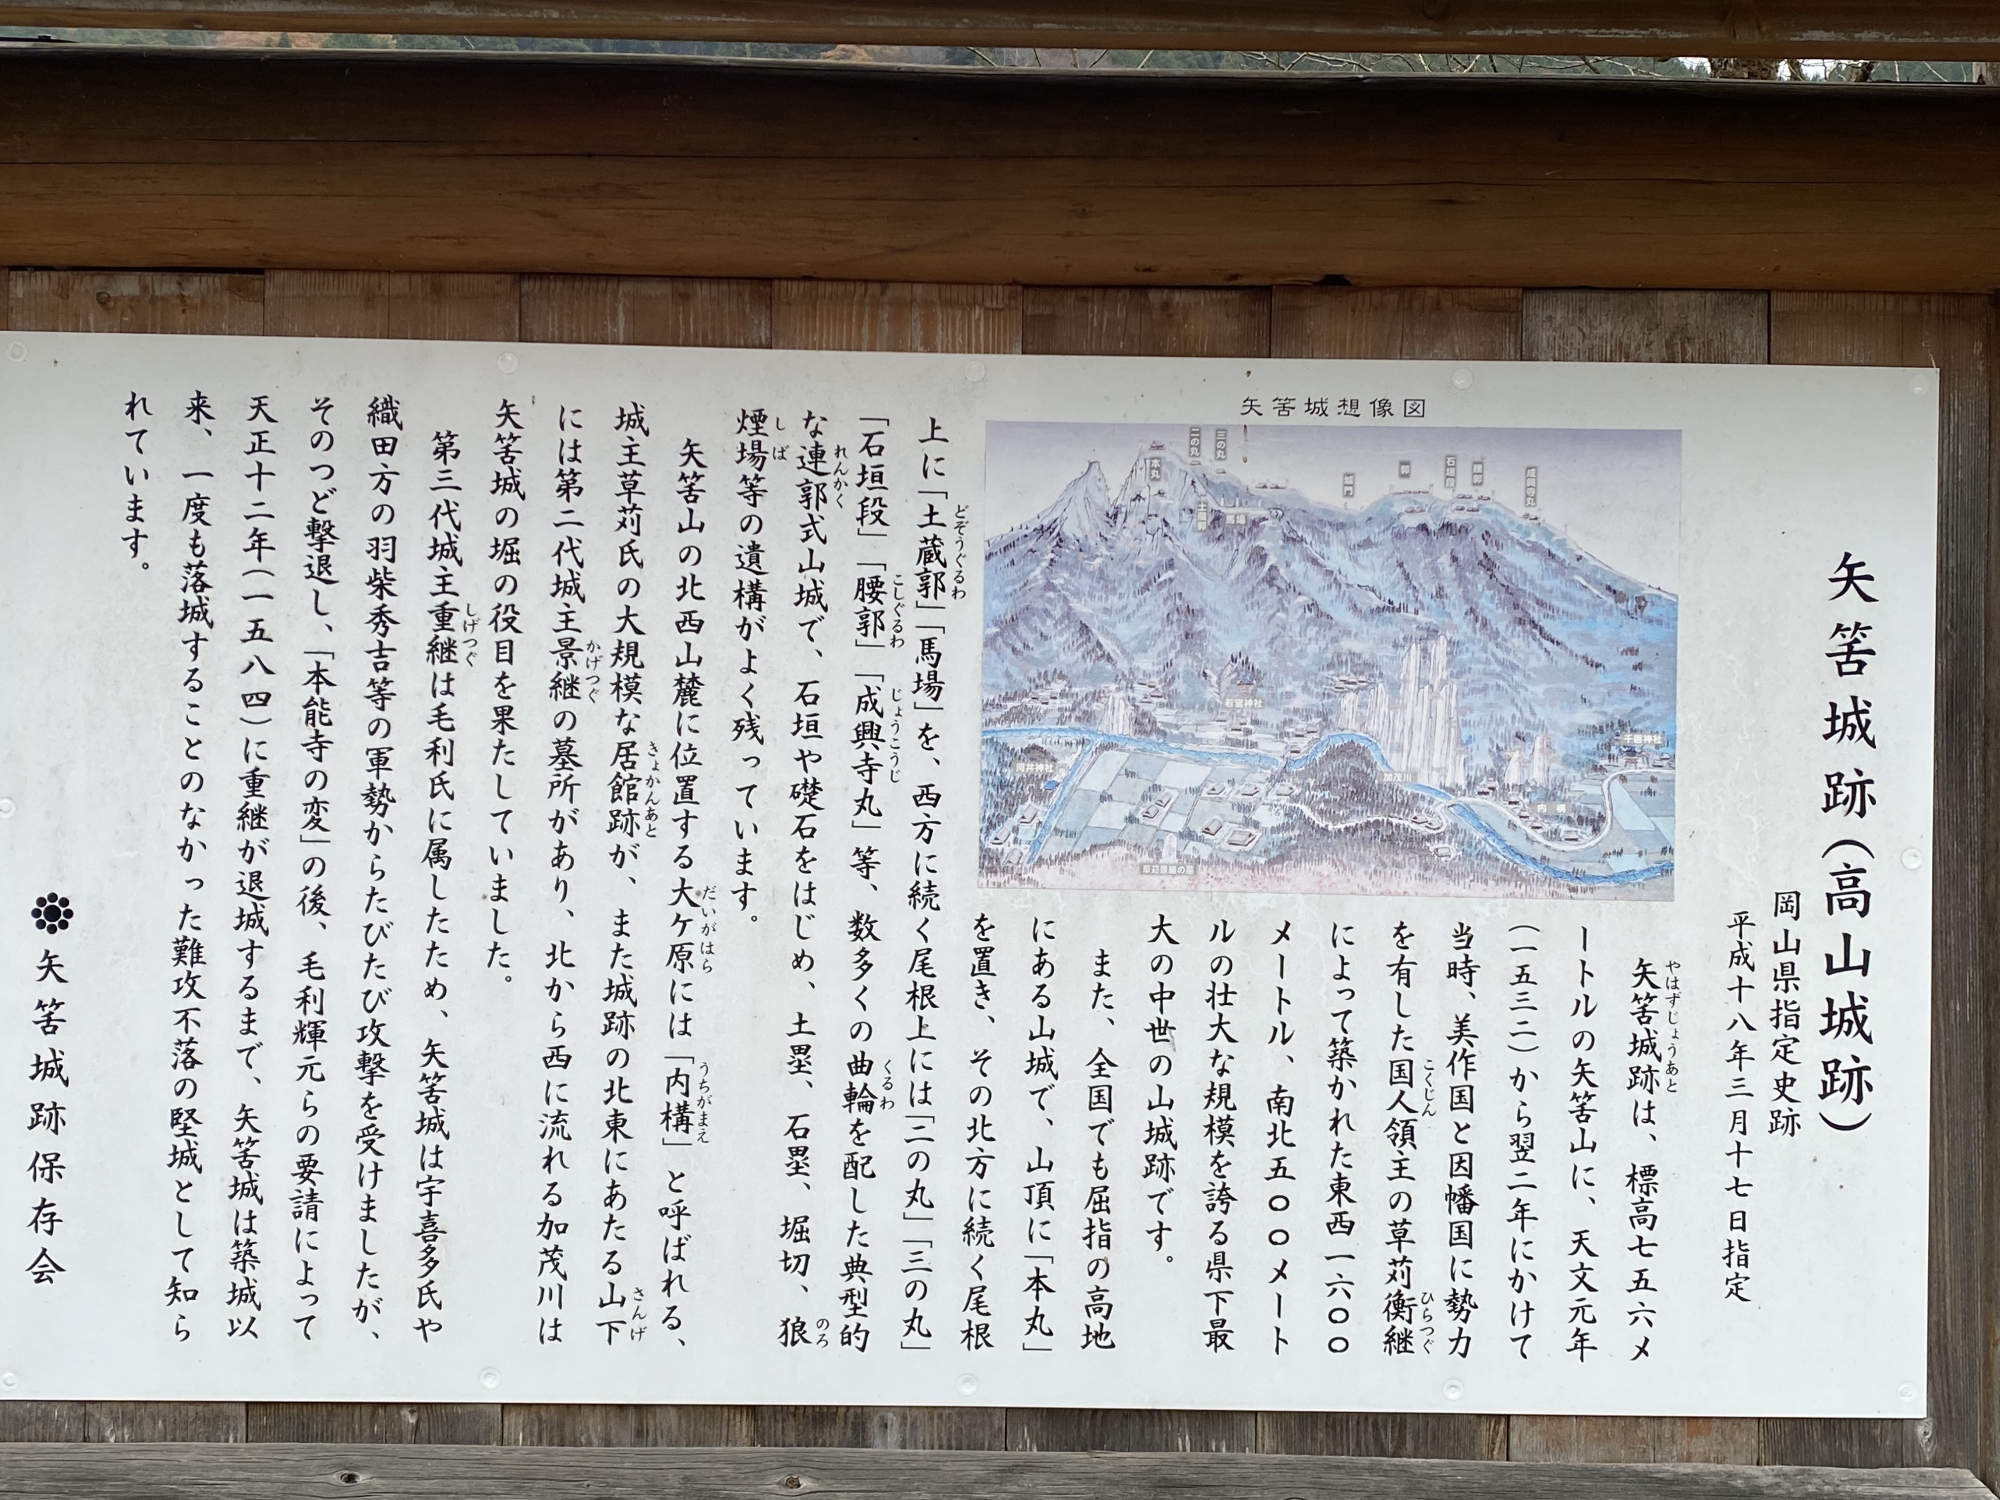 矢筈城跡（高山城跡）
岡山県指定史跡
平成十八年三月十七日指定
矢筈城跡は、標高七五六メ
やはずじょうあと
ートルの矢筈山に、天文元年
（一五三二）から翌二年にかけて
当時、美作国と因幡国に勢力
を有した国人領主の草苅衡継
こくじん
ひらつぐ
によって築かれた東西一六〇〇
メートル、南北五〇〇メート
ルの壮大な規模を誇る県下最
大の中世の山城跡です。
また、全国でも屈指の高地
にある山城で、山頂に「本丸」
を置き、その北方に続く尾根
矢筈城想像図
本丸
二の丸
三の丸
土蔵郭
馬場
城門
郭
石垣段
腰郭
成興寺丸
若宮神社
千磐神社
河井神社
加茂川
内構
草苅景継の墓
上に「土蔵郭」「馬場」を、西方に続く尾根上には「二の丸」「三の丸」
どぞうぐるわ
「石垣段」「腰郭」「成興寺丸」等、数多くの曲輪を配した典型的
こしぐるわ
じょうこうじ
くるわ
な連郭式山城で、石垣や礎石をはじめ、土塁、石塁、堀切、狼
れんかく
のろ
煙場等の遺構がよく残っています。
しば
矢筈山の北西山麓に位置する大ケ原には「内構」と呼ばれる、
だいがはら
うちがまえ
城主草苅氏の大規模な居館跡が、また城跡の北東にあたる山下
きょかんあと
さんげ
には第二代城主景継の墓所があり、北から西に流れる加茂川は
かげつぐ
矢筈城の堀の役目を果たしていました。
第三代城主重継は毛利氏に属したため、矢筈城は宇喜多氏や
しげつぐ
織田方の羽柴秀吉等の軍勢からたびたび攻撃を受けましたが、
そのつど撃退し、「本能寺の変」の後、毛利輝元らの要請によって
天正十二年（一五八四）に重継が退城するまで、矢筈城は築城以
来、一度も落城することのなかった難攻不落の堅城として知ら
れています。
矢筈城跡保存会